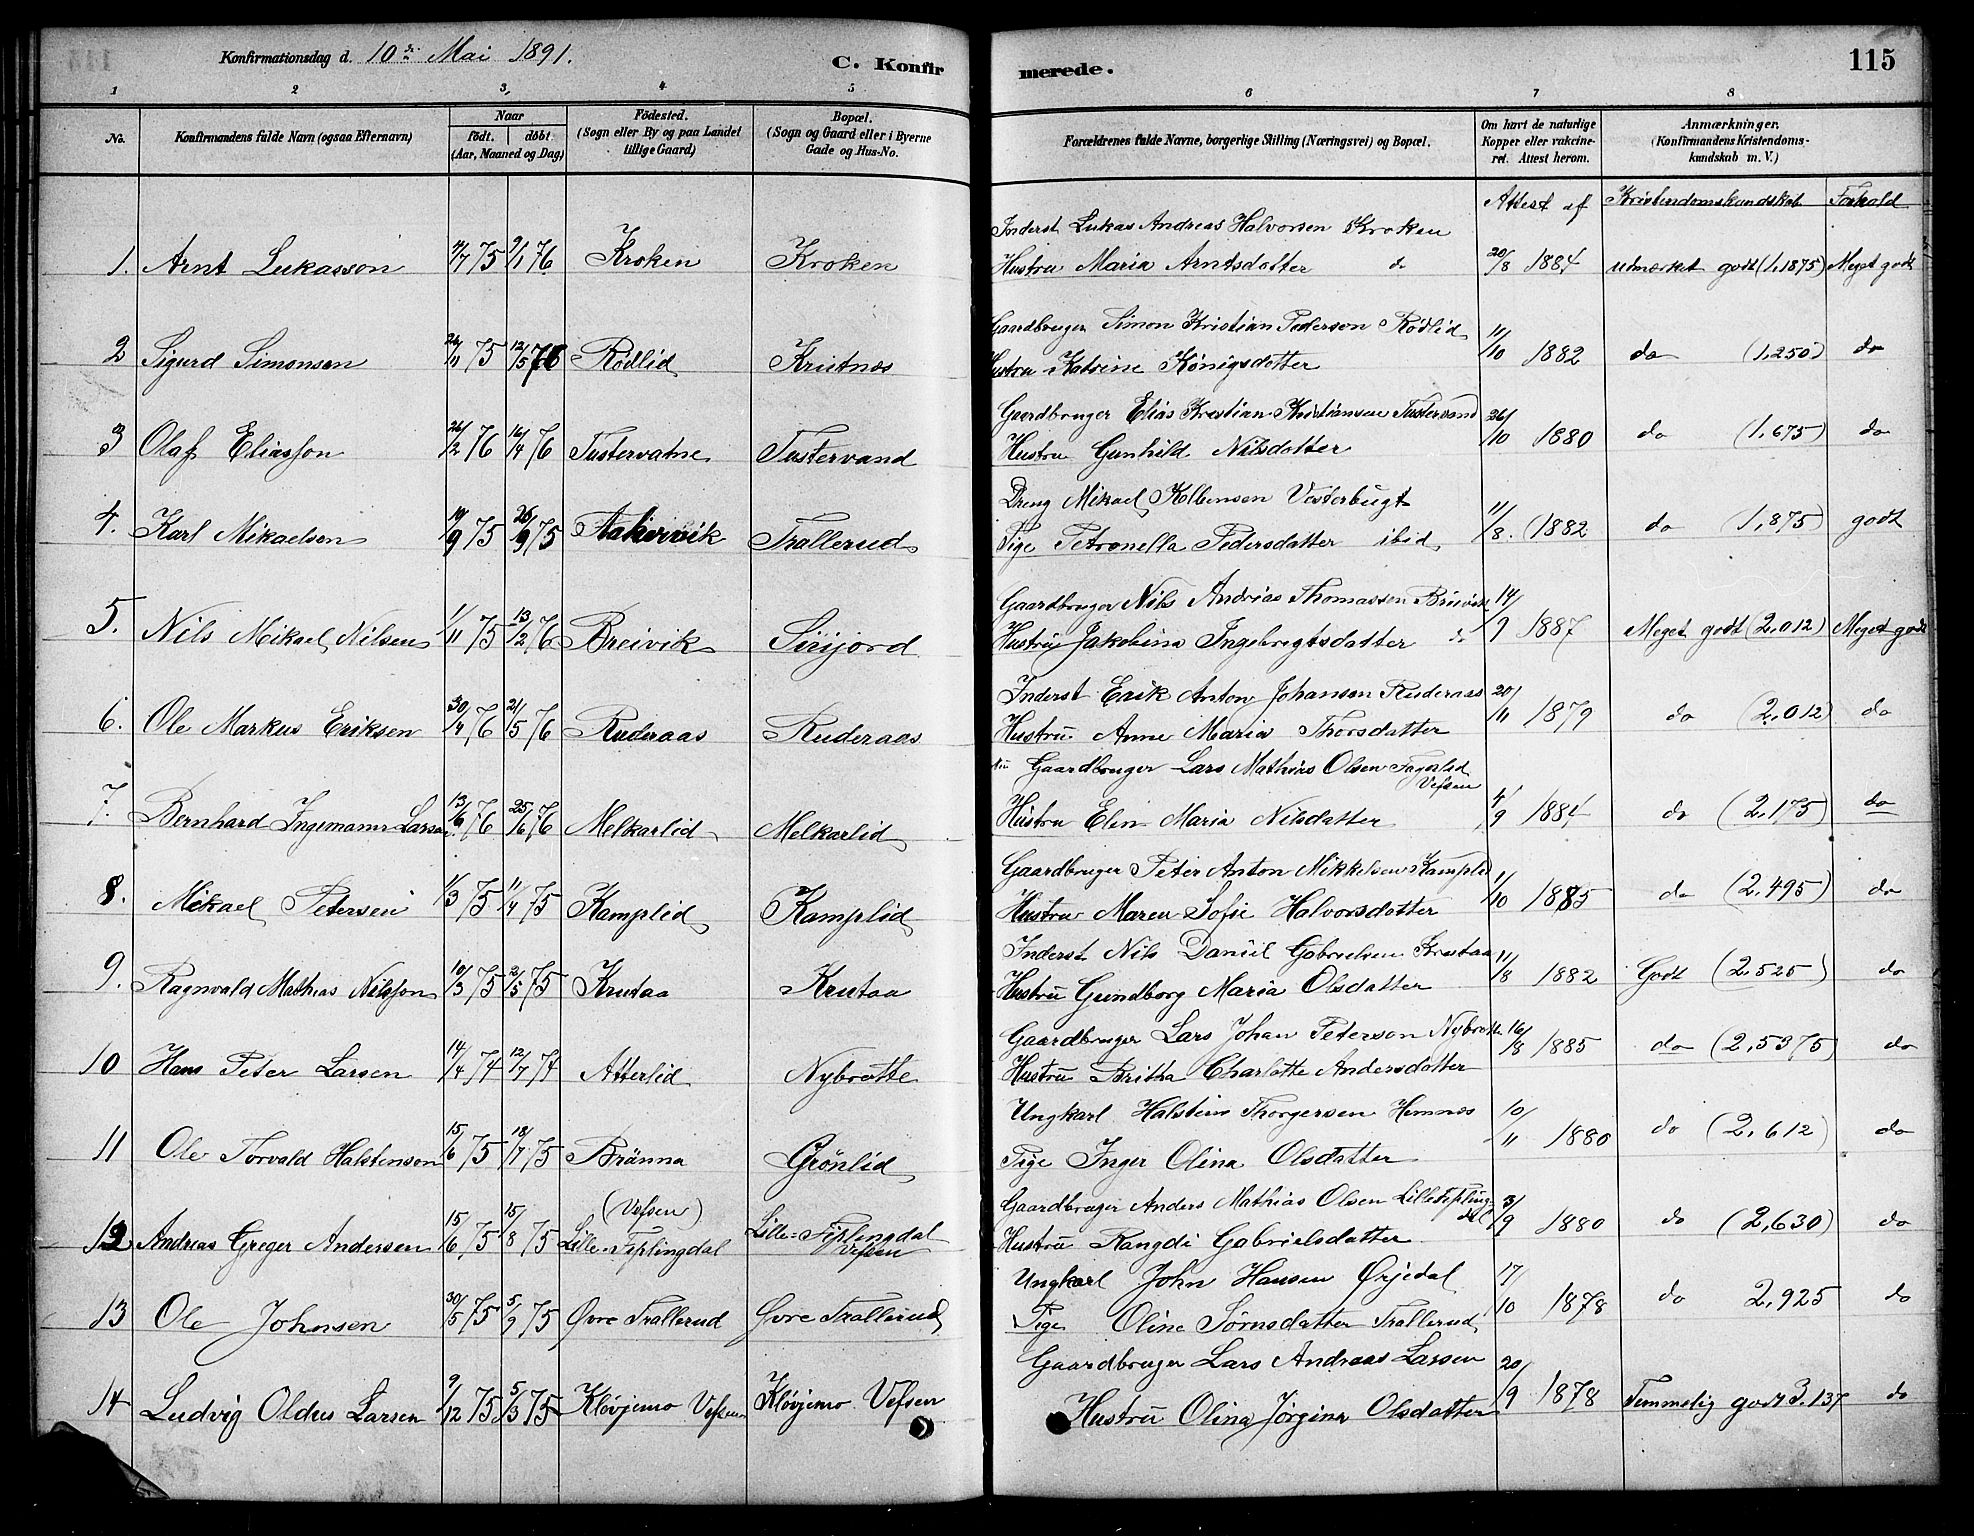 Konfirmationsdag d. 10de Mai 1891.
C. Konfirmerede.
115
1 2 3, 4 5 6 7 8
No. Konfirmandens fulde Navn (ogsaa Efternavn) Naar født. døbt. (Aar, Maaned og Dag) Fødested. (Sogn eller By og paa Landet tillige Gaard) Bopæl. (Sogn og Gaard eller i Byerne Gade og Hus-No. Forældrenes fulde Navne, borgerlige Stilling (Næringsvei) og Bopæl. Om havt de naturlige Kopper eller vakcineret. Attest herom. Anmærkninger. (Konfirmandens Kristendomskundskab m. V.)
Attest af Kristendomskundskab Forhold
Inderst Lukas Andreas Halvorsen Kroken
1. Arnt Lukasson 75 9/1 76 Kroken Kroken Hustru Maria Arntsdatter do 20/8 1884 udmærket godt (1,1875) Meget godt
Gaardbruger Simon Kristian Pederson Rødlid
2 Sigurd Simonsen 75 12/5 76 Rødlid Krutnes Hustru Katrine Königsdatter 11/10 1882 do (1,250) do
Gaardbruger Elias Kristian Kristiansen Tustervand
3 Olaf Eliasson 26/2 76 16/4 76 Tustervatne Tustervand Hustru Gunhild Nilsdatter 26/10 1880 do (1,675) do
Dreng Mikael Kolbensen Vesterbugt
4. Karl Mikaelsen 19/9 75 26/9 75 Aakervik Trallerud Pige Petronella Pedersdatter ibid 11/8. 1882 do (1,875) godt
Gaardbruger Nils Andreas Thomassen Breivik
5. Nils Mikael Nilsen 1/11 75 13/2 76 Breivik Sirijord Hustru Jakobina Ingebrigtsdatter do 14/9 1887 Meget godt (2,012) Meget godt
Inderst Erik Anton Johanson Ruderaas
6. Ole Markus Eriksen 30/4 76 21/5 76 Ruderaas Ruderaas Hustru Anne Maria Thorsdatter 20/11 1879 do (2,012) do
Nu Gaardbruger Lars Mathias Olsen Fagerlid Vefsen
7. Bernhard Ingemann Larsen 76 25/6 76 Melkarlid Melkarlid Hustru Elin Maria Nilsdatter 4/9 1884 do (2,175) do
Gaardbruger Peter Anton Mikkelsen Kamplid
8. Mikael Petersen 1/3 75 11/4 75 Kamplid Kamplid Hustru Maren Sofie Halvorsdatter 11/10 1885 do (2,495) do
Inderst Nils Daniel Gabrielsen Krutaa
9. Ragnvald Mathias Nilsson 10/3 75 2/5 75 Krutaa Krutaa Hustru Gundborg Maria Olsdatter 11/8 1882 Godt (2,525) do
Gaardbruger Lars Johan Peterson Nybrotte
10 Hans Peter Larsen 14/4 74 12/7 74 Atterlid Nybrotte Hustru Britha Charlotte Andersdatter 16/8 1885 do (2,5375) do
Ungkarl Halstein Thorgersen Hemnes
11 Ole Torvald Halstenson 15/6 75 18/7 75 Bränna Grönlid Pige Inger Olina Olsdatter 10/11 1880 do (2,612) do
Gaardbruger Anders Mathias Olsen Lille Fiplingdal
12 Andreas Greger Andersen 15/6 75 15/8 75 (Vefsen) Lille-Fiplingdal Lille=Fiplingdal Vefsen Hustru Rangdi Gabrielsdatter 3/9 1880 do (2,630) do
Ungkarl John Hansen Ørjedal
13 Ole Johnsen 30/5 75 5/9 75 Øvre Trallerud Øvre Trallerud Pige Oline Sørnsdatter Trallerud 17/10 1878 do 2,925 do
Gaardbruger Lars Andreas Larsen
14 Ludvig Oldus Larsen 9/12 75 5/3 75 Kløvjemo Vefsen Kløvjemo Vefsen Hustru Olina Jørgina Olsdatter 20/9 1878 Temmelig godt 3.137 do